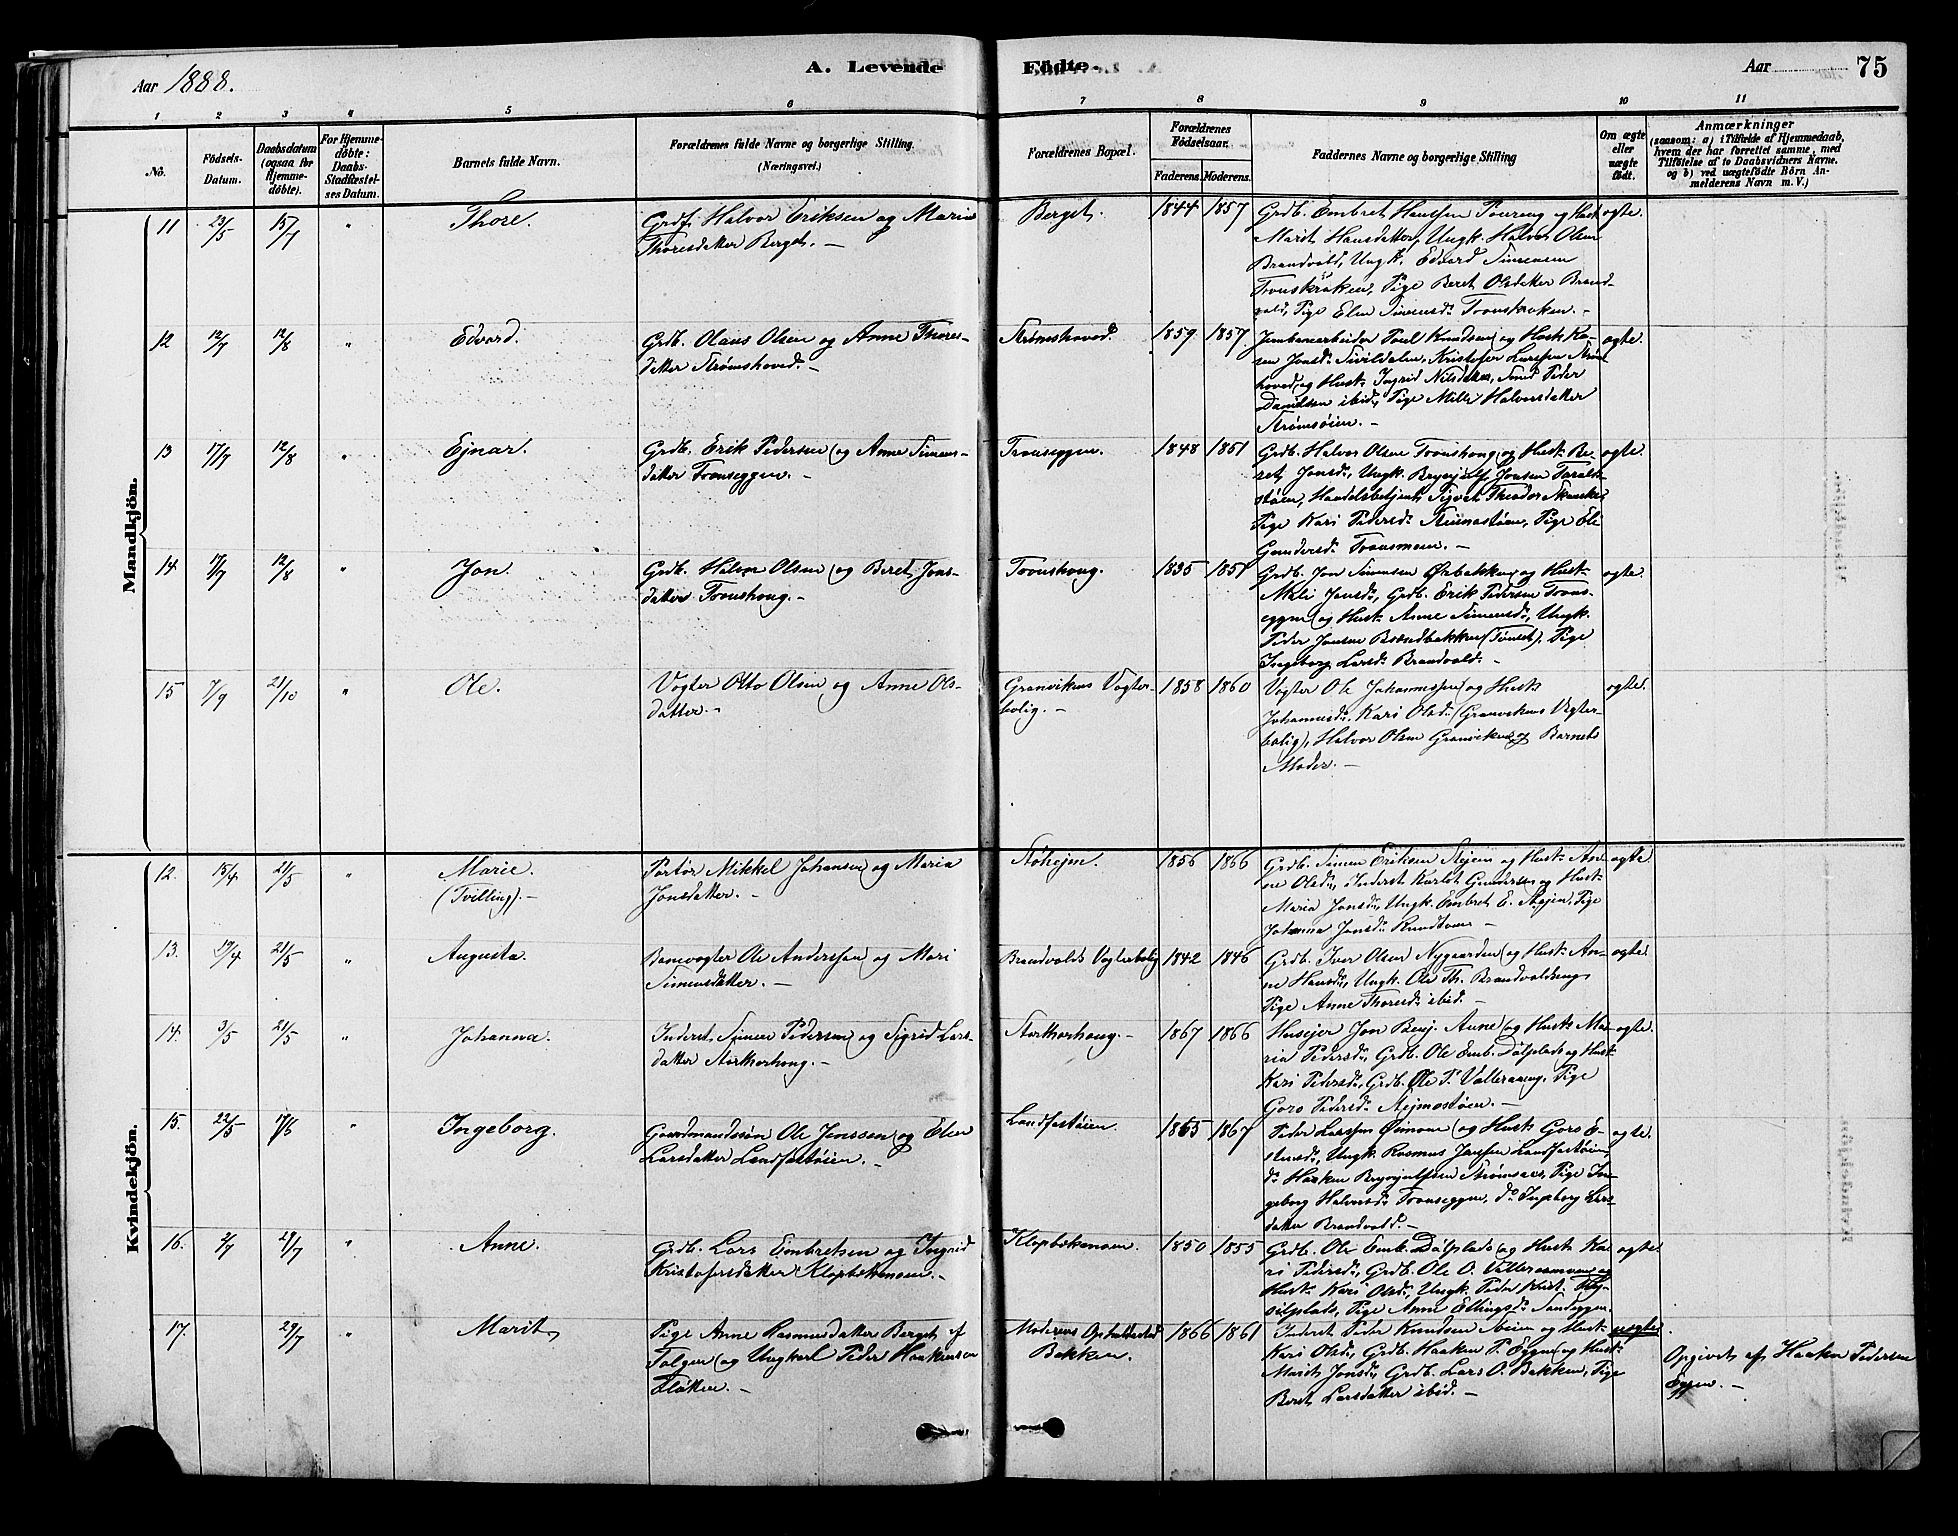 Aar 1888.
A. Levende
Födte.
Aar
75
1
2
3
4
5
6
7
8
9
10
11
No.
Födsels-
Datum.
Daabsdatum
(ogsaa for
Hjemme-
döbte).
For Hjemme-
döbte:
Daabs-
Stadfæstel-
ses Datum.
Barnets fulde Navn.
Forældrenes fulde Navne og borgerlige Stilling.
(Næringsvei.)
Forældrenes Bopæl.
Forældrenes
Födselsaar.
Faderens.
Moderens.
Faddernes Navne og borgerlige Stilling
Om ægte
eller
uægte
födt.
Anmærkninger
(saasom: a) i Tilfælde af Hjemmedaab,
hvem der har forrettet samme, med
Tilföielse af to Daabsvidners Navne.
og b) ved uægtefödte Börn An-
melderens Navn m. V.)
Mandkjön.
11
23/5
15/7
"
Thore.
Grdf. Halvor Eriksen og Marie
Thoresdatter Berget. —
Berget.
1844
1857
Grdb. Embret Hansen og Hust
Marit Hansdatter, Ungk. Halvor Olsen
Brandvold, Ungk. Edvard Simensen
Tronskroken, Pige Beret Olsdatter Brand-
vold, Pige Elen Simensd. Tronskroken. —
ægte.
12
12/7
12/8
"
Edvard.
Grdb. Olaus Olsen og Anne Thores-
datter Strømshoved. —
Strømshoved.
1859
1857
Jernbanearbeider Poul Knudsen og Hust. Ka-
ren Jonsd. Sivildalen, Kristofer Larsen Strøms-
hoved og Hust. Ingrid Nilsdatter, Smed Peder
Danielsen ibid., Pige Milli Halvorsdatter
Strømsøien. —
ægte.
13
7/7
12/8
"
Ejnar.
Grdb. Erik Pedersen og Anne Simens-
datter Tronseggen. —
Tronseggen.
1848
1851
Grdb. Halvor Olsen Tronshoug og Hust. Be-
ret Jonsd., Ungk. Brynjulf Jonsen
støen, Handelsbetjent Sigvat Theodor
Pige Kari Pedersd. Steimostøen, Pige Eli
Gundersd. Tronsmoen. —
ægte.
14.
17/7
12/8
"
Jon.
Grdb. Halvor Olsen og Beret Jons-
datter Tronshoug. —
Tronshoug.
1835
1851
Grdb. Jon Simensen og Hust.
Mali Jonsd., Grdb. Erik Pedersen Trons-
eggen og Hust. Anne Simensd., Ungk.
Peder Jonsen Brændbakken (Tønset), Pige
Ingeborg Larsd. Brandvold. —
ægte.
15
7/9
21/10
"
Ole.
Vogter Otto Olsen og Anne Ols-
datter. —
Granvikens Vogter-
bolig. —
1858
1860
Vogter Ole Johannessen og Hust.
Johannesd. Kari Olsd. (Granvikens Vogter-
bolig), Halvor Olsen Granviken og Barnets
Moder. —
ægte.
Kvindekjön.
12.
15/4
21/5
"
Marie.
(Tvilling). —
Portør Mikkel Johansen og Maria
Jonsdatter. —
Støhejen.
1856
1866
Grdb. Simen Eriksen Stejen og Hust. An-
ne Olsd., Inderst Gundersen og Hust.
Maria Jonsd., Ungk. Embret E. Stejen, Pige
Johanna Jonsd.
ægte.
13.
19/4
21/5
"
Augusta.
Banevogter Ole Anderssen og Mari
Simensdatter. —
Brandvolds Vogterbolig
1842
1846
Grdb. Iver Olsen Nygaarden og Hust. An-
ne Hansd., Ungk. Ole Th. Brandvoldeng
Pige Anne Thoresd. ibid. —
ægte.
14.
3/5
21/5
"
Johanna.
Inderst Simen Pedersen og Sigrid Lars-
datter Storkorhoug. —
Storkorhoug. —
1867
1866
Husejer Jon Benj. Aune og Hust. Ma-
ria Pedersd., Grdb. Ole Emb. Dølplads og Hust.
Kari Pedersd., Grdb. Ole P. Valleraaeng, Pige
Goro Pedersd. Stejmostøen. —
ægte.
15.
22/5
"
Ingeborg.
Gaardmandssøn Ole Jenssen og Elen
Larsdatter Landfastøien. —
Landfastøien.
1865
1867
Peder Larssen Øimoen og Hust. Goro E-
stensd., Ungk. Rasmus Jenssen Landfastøien,
d. Haaken Brynjulfsen Strømsaas, Pige In-
geborg Halvorsd. Tronseggen, d. Ingeborg Lars-
datter Brandvold. —
ægte.
16.
2/7
29/7
"
Anne.
Grdb. Lars Embretsen og Ingrid
Kristofersdatter Klopbækmoen. —
Klopbækmoen.
1850
1855
Grdb. Ole Emb. Dølplads og Hust. Ka-
ri Pedersd., Grdb. Ole O. Valleraamoen og
Hust. Kari Olsd., Ungk. Peder Krist.
plads, Pige Anne Ellingsd. Sandeggen.
ægte.
17.
29/7
"
Marit,
Pige Anne Rasmusdatter Berget af
Tolgen og Ungkarl Peder Haakensen
Eløkken. —
Moderens Opholdssted
Bakken.
1866
1861
Inderst Peder Knudsen og Hust.
Kari Olsd., Grdb. Haaken P. Eggen og Hust.
Marit Jonsd., Grdb. Lars O. Bakken, Pige
Beret Larsdatter ibid. —
uægte.
Opgivet af Haaken Pedersen
Eggen. —